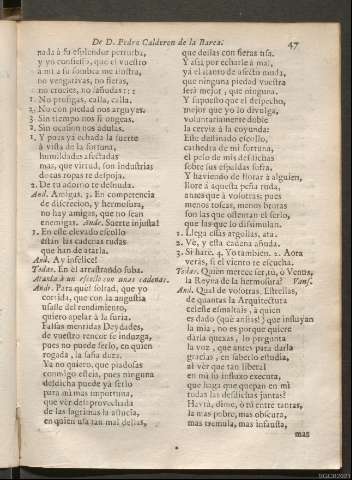 De D. Pedro Calderon de la Barca.
47
nada à su esplendor perturba,
y yo confiesso, que el vuestro
à mi à su sombra me ilustra,
no vengativas, no fieras,
no crueles, no sañudas:::
1. No prosigas, calla, calla.
2. No con piedad nos arguyas.
3. Sin tiempo nos lisongeas.
2. Sin ocasion nos adulas.
1. Y pues yà echada la suerte
à vista de la fortuna,
humildades afectadas
mas, que virtud, son industrias
de tus ropas te despoja.
2. De tu adorno te desnuda.
And. Amigas, 3. En competencia
de discrecion, y hermosura,
no hay amigas, que no sean
enemigas. Andr. Suerte injusta!
1. En este elevado escollo
están las cadenas rudas
que han de atarla.
And. Ay infelice!
Todas. En èl arrastrando suba.
Atanla à un escollo con unas cadenas.
Andr. Para què soltad, que yo
corrida, que con la angustia
usasse del rendimiento,
quiero apelar à la furia.
Falsas mentidas Deydades,
de vuestro rencor se induzga,
pues no puede serlo, en quien
rogada, la saña dura.
Ya no quiero, que piadosas
conmigo esteis, pues ninguna
desdicha puede yà serlo
para mi mas importuna,
que vèr desaprovechada
de las lagrimas la astucia,
en quien usa tan mal dellas,
que dellas con fieras usa.
Y assi por echarle à mal,
yà el llanto de afecto muda,
que ninguna piedad vuestra
serà mejor, que ninguna.
Y supuesto que el despecho,
mejor que yo lo divulga,
voluntariamente doble
la cerviz à la coyunda:
Este destinado escollo,
cathedra de mi fortuna,
el peso de mis desdichas
sobre sus espaldas sufra,
Y haviendo de llorar à alguien,
llore à aquesta peña ruda,
antes que à vosotras; pues
menos toscas, menos brutas
son las que ostentan el serlo,
que las que lo dissimulan.
1. Llega essas argollas, ata.
2. Vè, y esta cadena añuda.
3. Si harè. 4. Yo tambien. 2. Aora
veràs, si el viento te escucha.
Todas. Quien merece ser, tù, ò Venus,
la Reyna de la hermosura! Vans.
And. Què de vosotras, Estrellas,
de quantas la Arquitectura
celeste esmaltais, à quien
es dado (què ansias!) que influyan
la mia, no es porque quiere
darla quexas, lo pregunta
la voz, que antes para darla
gracias, en saberlo estudia,
al vèr que tan liberal
en mi su influxo executa,
que haga que quepan en mi
todas las desdichas juntas?
Havrà, dime, ò tù entre tantas,
la mas pobre, mas obscura,
mas tremula, mas infausta,
mas